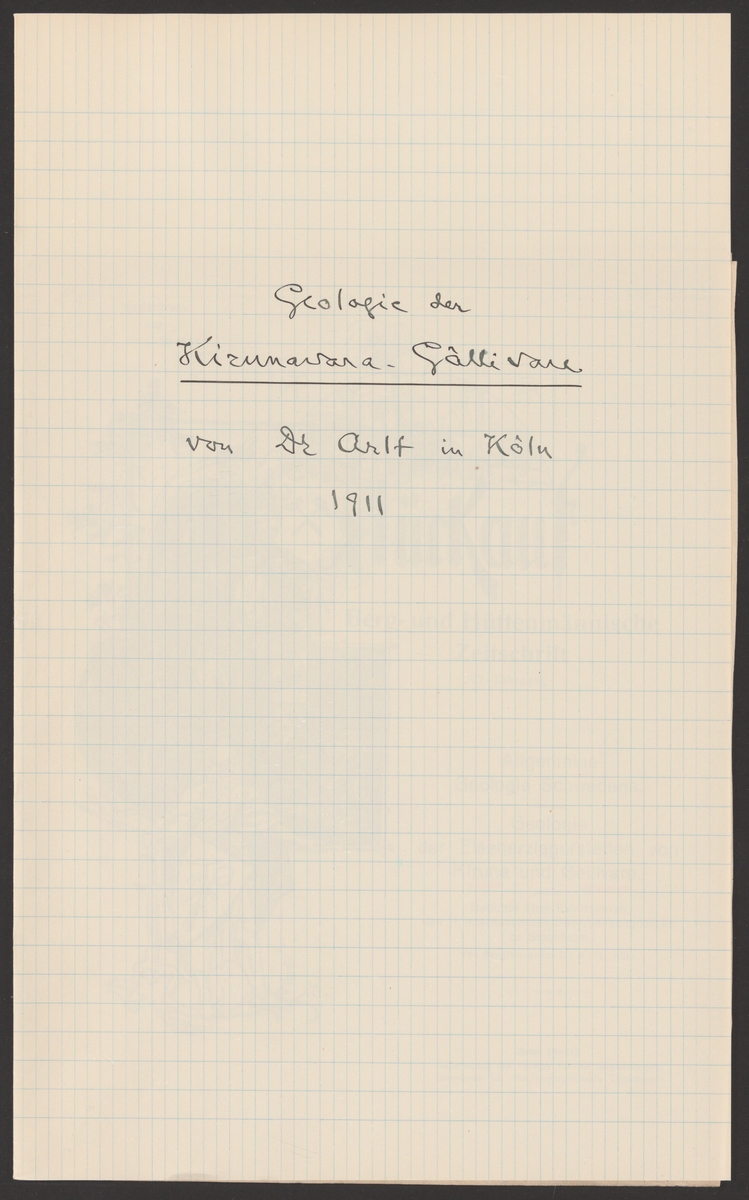 Geologie der
Kirunavara - Gällivare
von Dr Arlt in Köln
1911